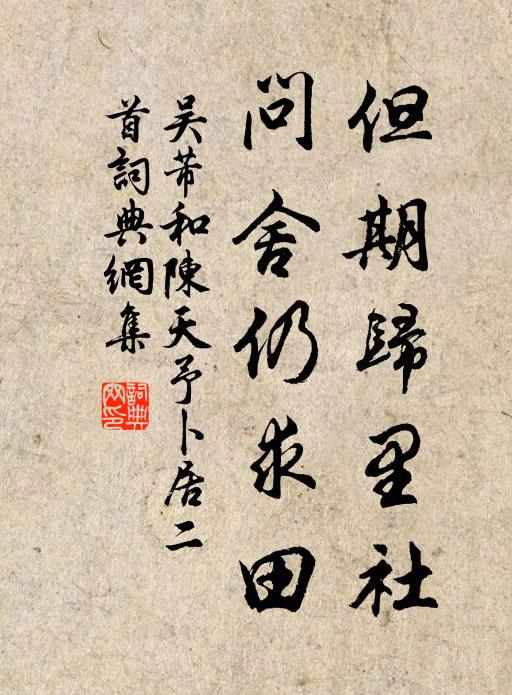 但期歸里社
問舍仍求田
吴芾和陳天予卜居二
首詞典網集
詞典
网印